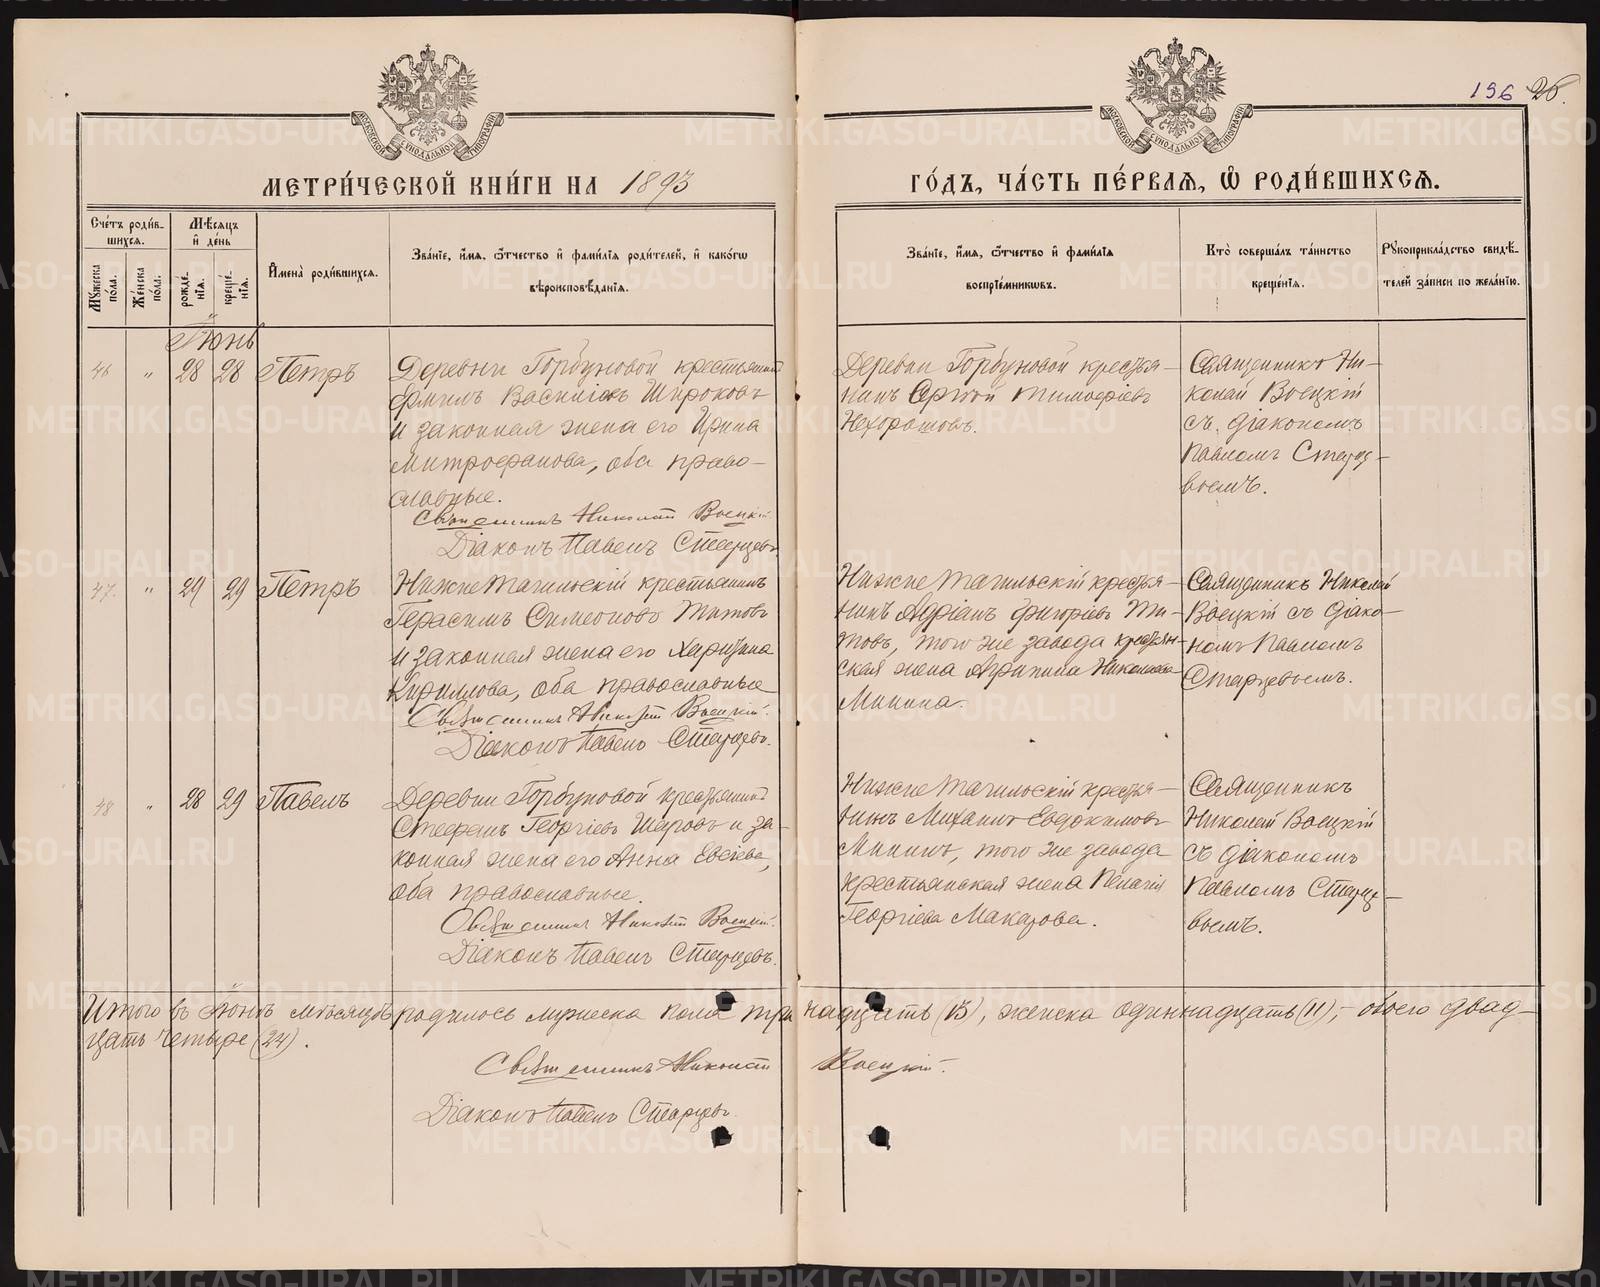 196 26.
МОСКОВСКОЙ СѴНОДАЛЬНОЙ ТИПОГРАФІИ
МОСКОВСКОЙ СѴНОДАЛЬНОЙ ТИПОГРАФІИ
МЕТРИ́ЧЕСКОЙ КНИ́ГИ НА 1893
ГО́ДЪ, ЧА́СТЬ ПЕ́РВАѦ, Ѡ҆ РОДИ́ВШИХСѦ.
Сче́тъ роди́в-
шихсѧ.
Мꙋжеска по́ла.
Же́нска по́ла.
Мѣ́сѧцъ
и҆ де́нь
рожде́-
нїѧ.
креще́-
нїѧ.
И҆мена̀ роди́вшихсѧ.
Зва́нїе, и҆́мѧ, ѻ҆́тчество и҆ фами́лїѧ роди́телей, и҆ како́гѡ
вѣроисповѣ́данїѧ.
Зва́нїе, и҆́мѧ, ѻ҆́тчество и҆ фами́лїѧ
воспрїе́мникѡвъ.
Кто̀ соверша́лъ та́инство
креще́нїѧ.
Рꙋкоприкла́дство свидѣ́-
телей за́писи по жела́нїю.
Іюнь
46 " 28 28 Петръ
Деревни Горбуновой крестьянинъ
Ермилъ Васильевъ Широковъ
и законная жена его Ирина
Митрофанова, оба право-
славные.
Священникъ Николай Воецкій
Діаконъ Павелъ Старцевъ.
Деревни Горбуновой крестья-
нинъ Сергей Тимофеевъ
Нехорошовъ.
Священникъ Ни-
колай Воецкій
съ діакономъ
Павломъ Старце-
вымъ.
47. " 29 29 Петръ
НижнеТагильскій крестьянинъ
Герасимъ Симеоновъ Титовъ
и законная жена его Харитина
Кириллова, оба православные
Священникъ Николай Воецкій.
Діаконъ Павелъ Старцевъ.
НижнеТагильскій крестья-
нинъ Андріанъ Григорьевъ Ти-
товъ, того же завода крестьян-
ская жена Агрипина Николаева
Минина.
Священникъ Николай
Воецкій съ діако-
номъ Павломъ
Старцевымъ.
48 " 28 29 Павелъ
Деревни Горбуновой крестьянинъ
Стефанъ Георгіевъ Шаровъ и за-
конная жена его Анна Евсіева,
оба православные.
Священникъ Николай Воецкій.
Діаконъ Павелъ Старцевъ.
НижнеТагильскій крестья-
нинъ Михаилъ Евдокимовъ
Мининъ, того же завода
крестьянская жена Пелагія
Георгіева Макарова.
Священникъ
Николай Воецкій
съ діакономъ
Павломъ Старце-
вымъ.
Итого въ Іюнѣ мѣсяцѣ родилось мужеска пола тринадцать (13), женска одиннадцать (11), - обоего двад-
цать четыре (24).
Священникъ Николай Воецкій.
Діаконъ Павелъ Старцевъ.
METRIKI.GASO-URAL.RU